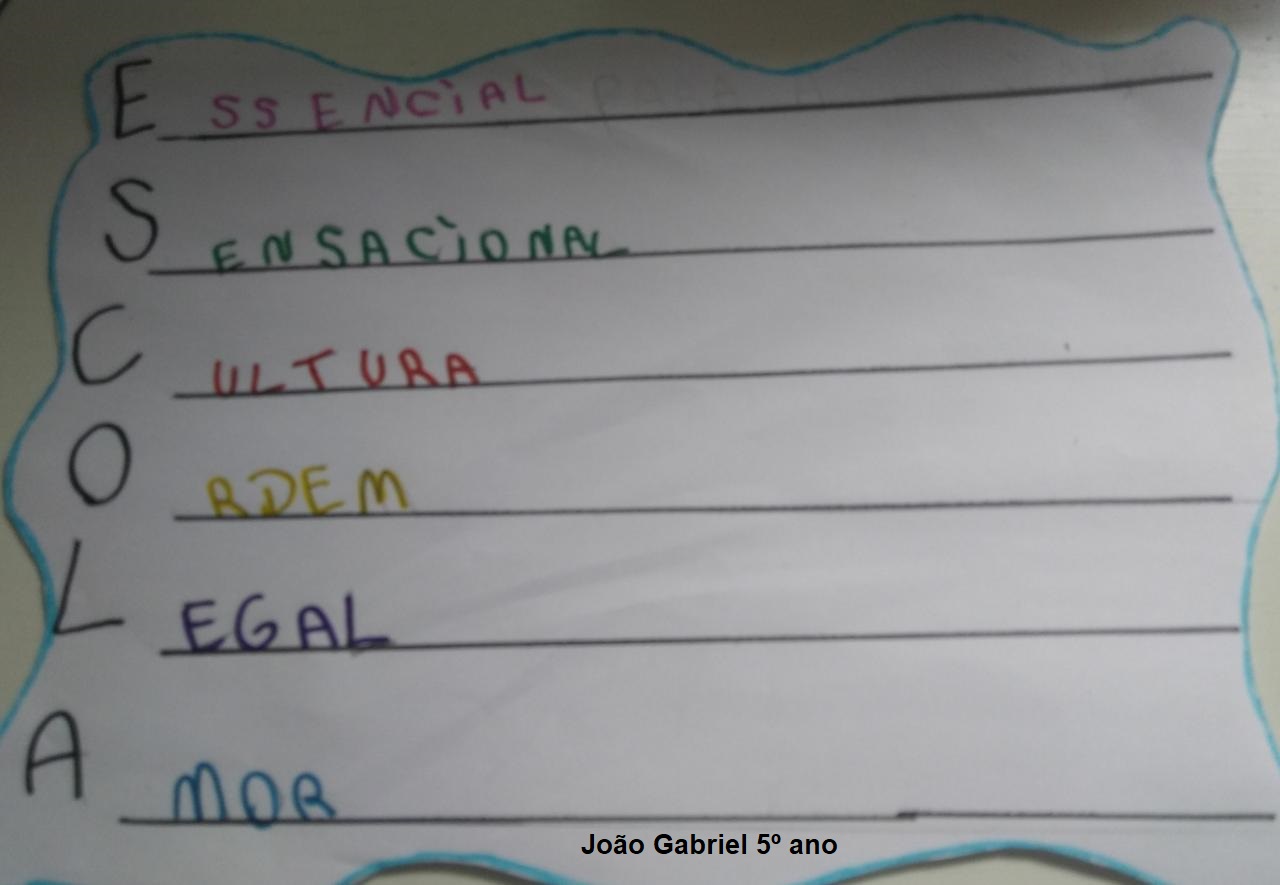 ESSENCiAL
SENSACiONAL
CULTURA
ORDEM
LEGAL
AMOR
João Gabriel 5º ano